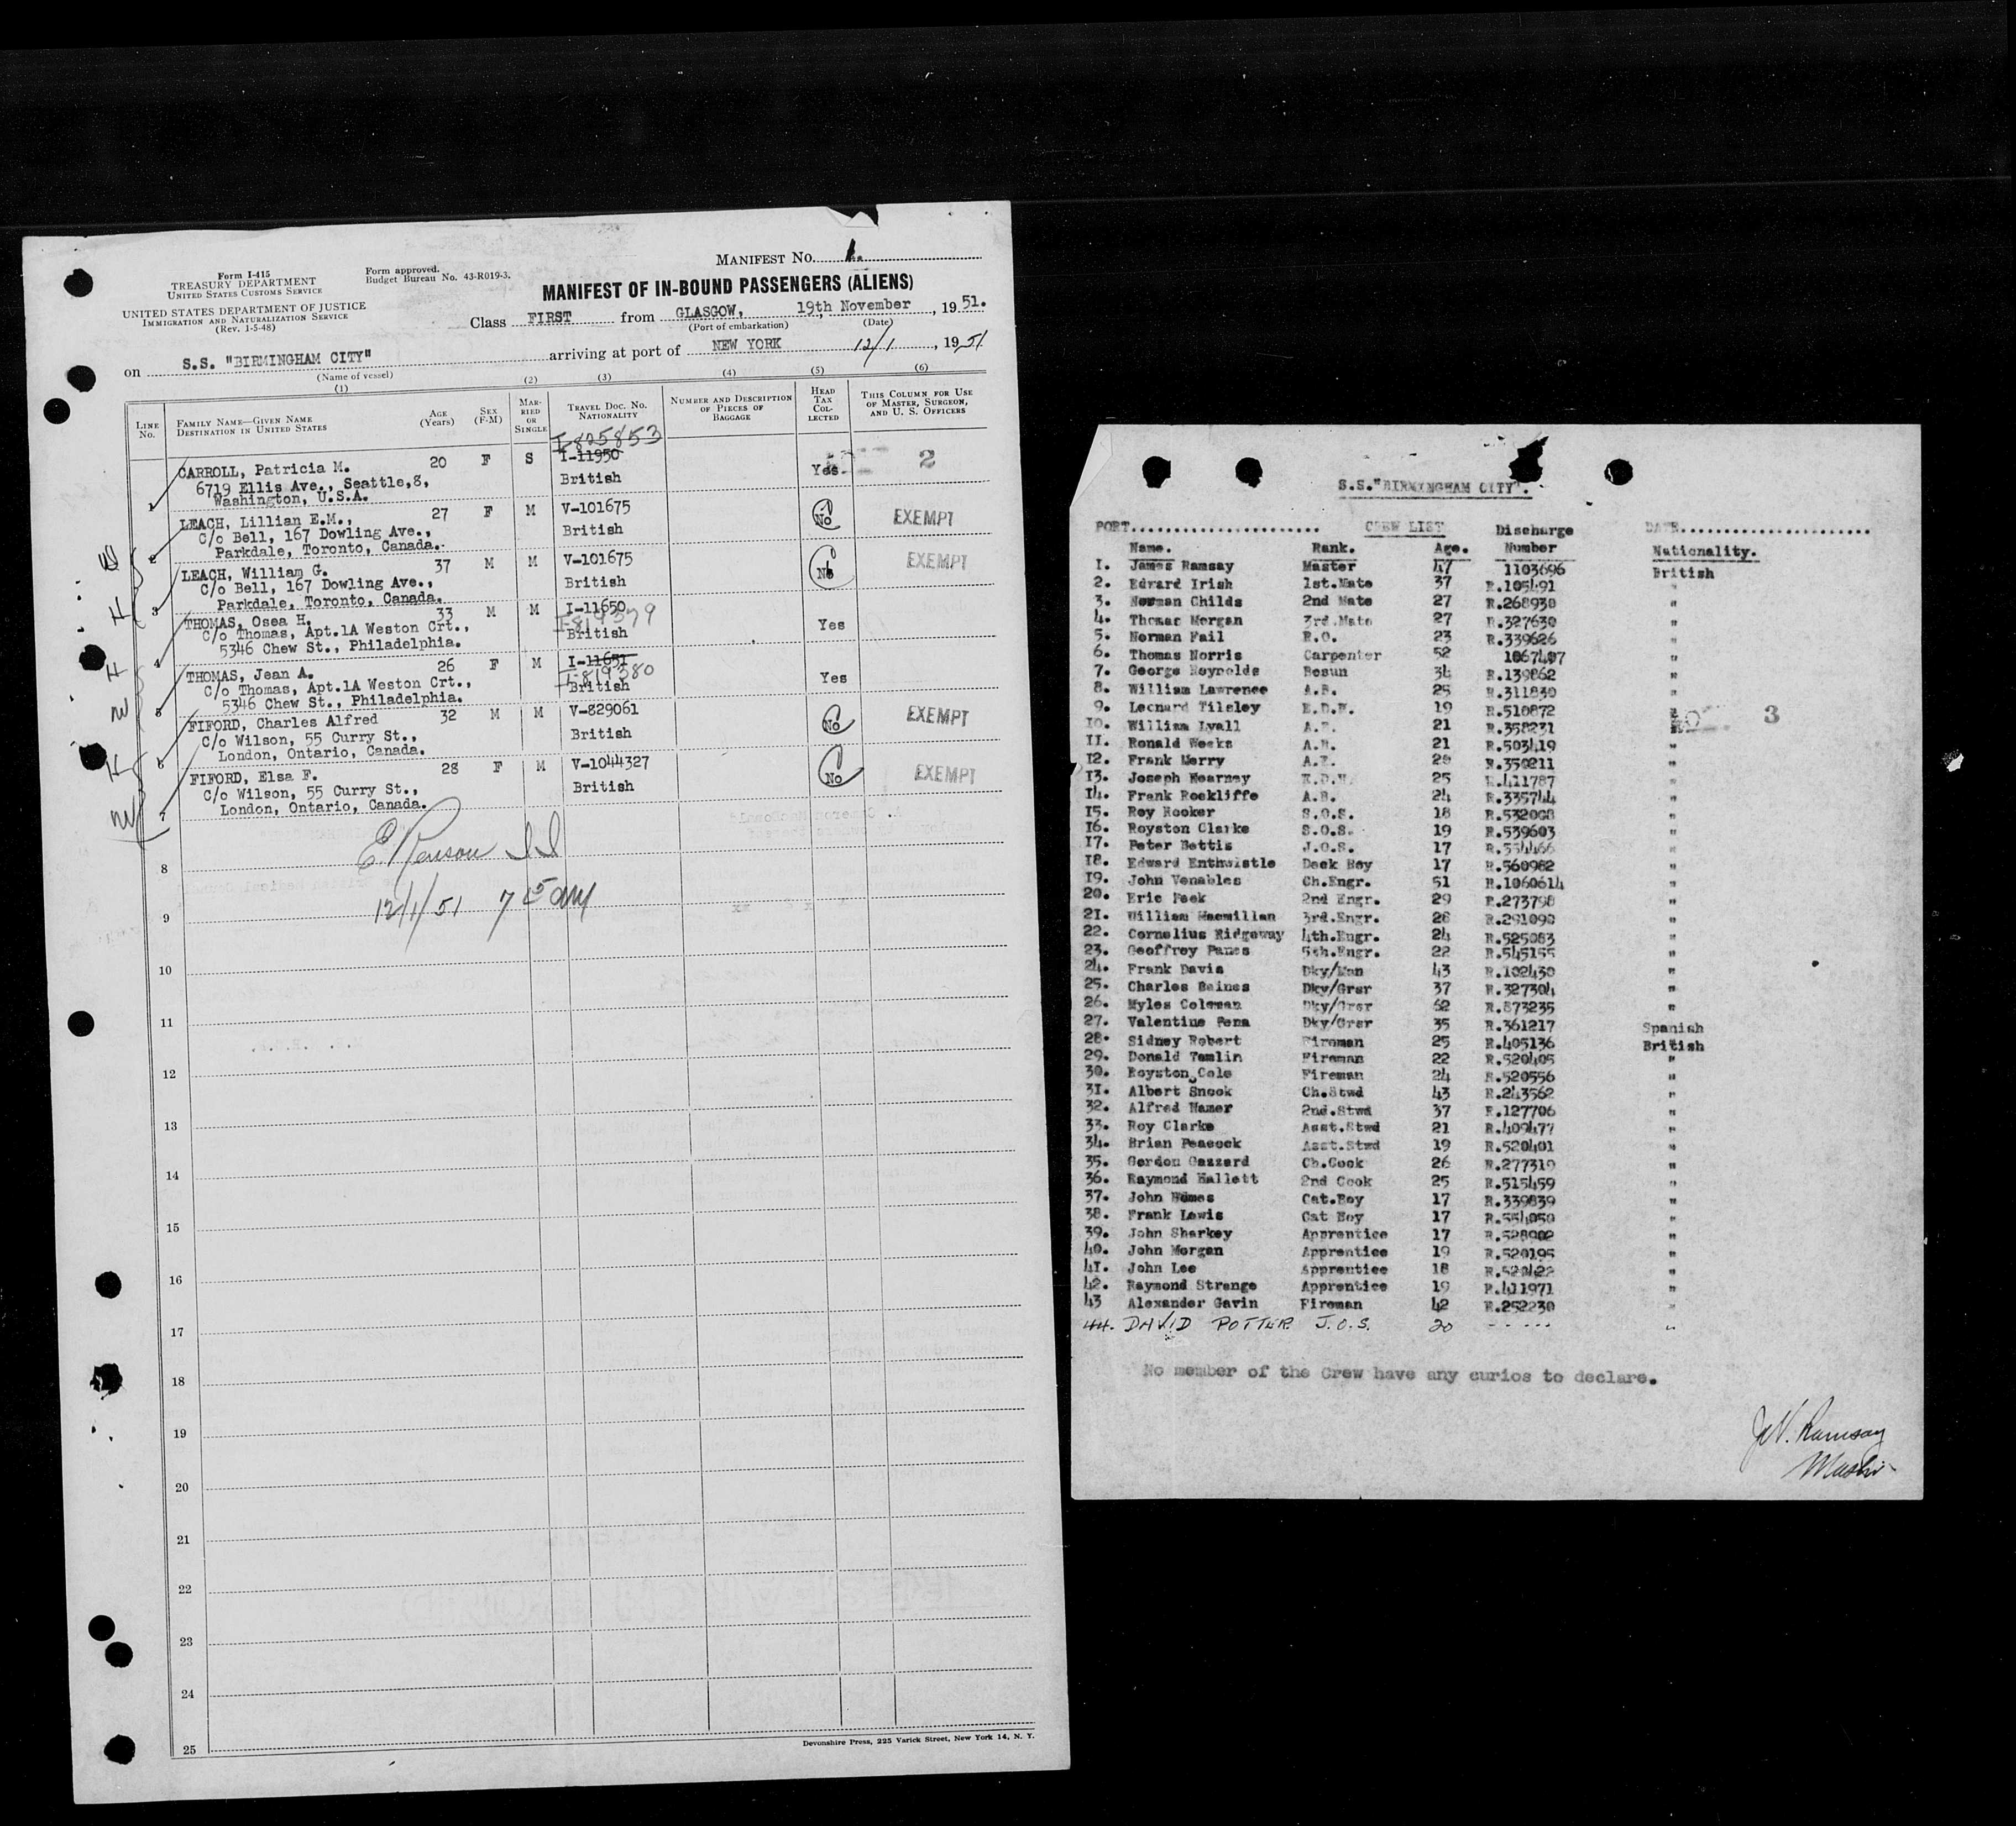 MANIFEST NO.
Form I-415
TREASURY DEPARTMENT
UNITED STATES CUSTOMS SERVICE
Form approved.
Budget Bureau No. 43-R019-3.
UNITED STATES DEPARTMENT OF JUSTICE
IMMIGRATION AND NATURALIZATION SERVICE
(Rev. 1-5-48)
MANIFEST OF IN-BOUND PASSENGERS (ALIENS)
Class FIRST from GLASGOW, 19th November, 1951.
(Port of embarkation) (Date)
on S.S. "BIRMINGHAM CITY" arriving at port of NEW YORK 12/1, 1951
(Name of vessel)
(1) (2) (3) (4) (5) (6)
LINE No. FAMILY NAME—GIVEN NAME DESTINATION IN UNITED STATES AGE (Years) SEX (F-M) MARRIED OR SINGLE TRAVEL DOC. NO. NATIONALITY NUMBER AND DESCRIPTION OF PIECES OF BAGGAGE HEAD TAX COLLECTED THIS COLUMN FOR USE OF MASTER, SURGEON, AND U. S. OFFICERS
I-825853
1 CARROLL, Patricia M. 20 F S I-11950 Yes. 2
6719 Ellis Ave., Seattle,8, British
Washington, U.S.A.
2 LEACH, Lillian E.M., 27 F M V-101675 No EXEMPT
c/o Bell, 167 Dowling Ave., British
Parkdale, Toronto, Canada.
3 LEACH, William G. 37 M M V-101675 No EXEMPT
c/o Bell, 167 Dowling Ave., British
Parkdale, Toronto, Canada.
4 THOMAS, Osea H. 33 M M I-11650 Yes
I-819379
c/o Thomas, Apt.1A Weston Crt., British
5346 Chew St., Philadelphia.
5 THOMAS, Jean A. 26 F M I-11651 Yes
I-819380
c/o Thomas, Apt.1A Weston Crt., British
5346 Chew St., Philadelphia.
6 FIFORD, Charles Alfred 32 M M V-829061 No EXEMPT
c/o Wilson, 55 Curry St., British
London, Ontario, Canada.
7 FIFORD, Elsa F. 28 F M V-1044327 No EXEMPT
c/o Wilson, 55 Curry St., British
London, Ontario, Canada.
8
12/1/51
9
10
11
12
13
14
15
16
17
18
19
20
21
22
23
24
25
Devonshire Press, 225 Varick Street, New York 14, N. Y.
S.S."BIRMINGHAM CITY".
PORT...................... CREW LIST DATE......................
Name. Rank. Age. Discharge Number Nationality.
1. James Ramsay Master 47 1103696 British
2. Edward Irish 1st.Mate 37 R.105491 "
3. Norman Childs 2nd Mate 27 R.268930 "
4. Thomas Morgan 3rd.Mate 27 R.327630 "
5. Norman Fail R.O. 23 R.339626 "
6. Thomas Norris Carpenter 52 1067407 "
7. George Reynolds Bosun 34 R.139862 "
8. William Lawrence A.B. 25 R.311830 "
9. Leonard Tilsley E.D.H. 19 R.510872 "
10. William Lyall A.B. 21 R.358231 " 3
11. Ronald Weeks A.B. 21 R.503419 "
12. Frank Merry A.B. 28 R.350211 "
13. Joseph Kearney E.D.H. 25 R.411787 "
14. Frank Rockliffe A.B. 24 R.335744 "
15. Roy Hooker S.O.S. 18 R.532008 "
16. Royston Clarke S.O.S. 19 R.539603 "
17. Peter Bettis J.O.S. 17 R.554466 "
18. Edward Enthwistle Deck Boy 17 R.560982 "
19. John Venables Ch.Engr. 51 R.1060614 "
20. Eric Peek 2nd Engr. 29 R.273798 "
21. William Macmillan 3rd.Engr. 28 R.291090 "
22. Cornelius Ridgeway 4th.Engr. 24 R.525083 "
23. Geoffrey Panes 5th.Engr. 22 R.545155 "
24. Frank Davis Dky/Man 43 R.102430 "
25. Charles Baines Dky/Grsr 37 R.327304 "
26. Myles Coleman Dky/Grsr 62 R.873235 "
27. Valentine Pena Dky/Grsr 35 R.361217 Spanish
28. Sidney Robert Fireman 25 R.405136 British
29. Donald Tamlin Fireman 22 R.520405 "
30. Royston Cole Fireman 24 R.520556 "
31. Albert Snook Ch.Stwd 43 R.243562 "
32. Alfred Hamer 2nd.Stwd 37 R.127706 "
33. Roy Clarke Asst.Stwd 21 R.409477 "
34. Brian Peacock Asst.Stwd 19 R.520401 "
35. Gordon Gazzard Ch.Cook 26 R.277319 "
36. Raymond Hallett 2nd Cook 25 R.515459 "
37. John Humes Cat.Boy 17 R.339839 "
38. Frank Lewis Cat Boy 17 R.554050 "
39. John Sharkey Apprentice 17 R.528902 "
40. John Morgan Apprentice 19 R.520195 "
41. John Lee Apprentice 18 R.520422 "
42. Raymond Strange Apprentice 19 R.411971 "
43 Alexander Gavin Fireman 42 R.252230 "
44. DAVID POTTER J.O.S. 20 ----- "
No member of the Crew have any curios to declare.
Ramsay
Master